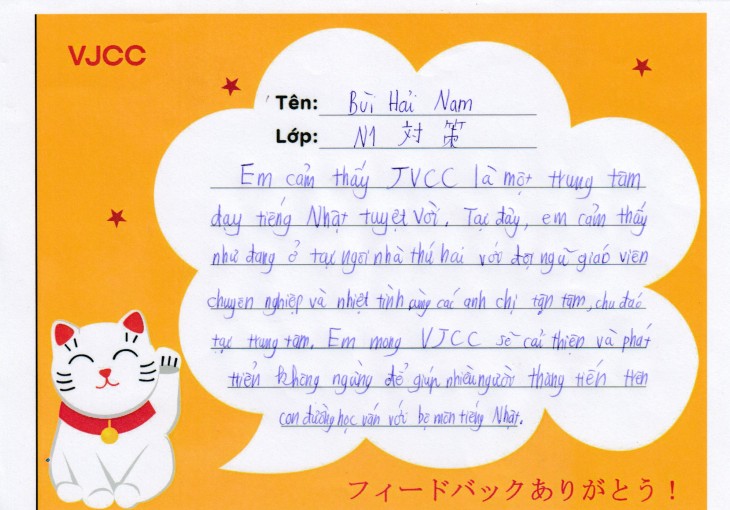 VJCC
Tên: Bùi Hải Nam
Lớp: N1 対策
Em cảm thấy JVCC là một trung tâm
dạy tiếng Nhật tuyệt vời. Tại đây, em cảm thấy
như đang ở tại ngôi nhà thứ hai với đội ngũ giáo viên
chuyên nghiệp và nhiệt tình cùng các anh chị tận tâm, chu đáo
tại trung tâm. Em mong VJCC sẽ cải thiện và phát
triển không ngừng để giúp nhiều người thăng tiến trên
con đường học vấn với bộ môn tiếng Nhật.
フィードバックありがとう！